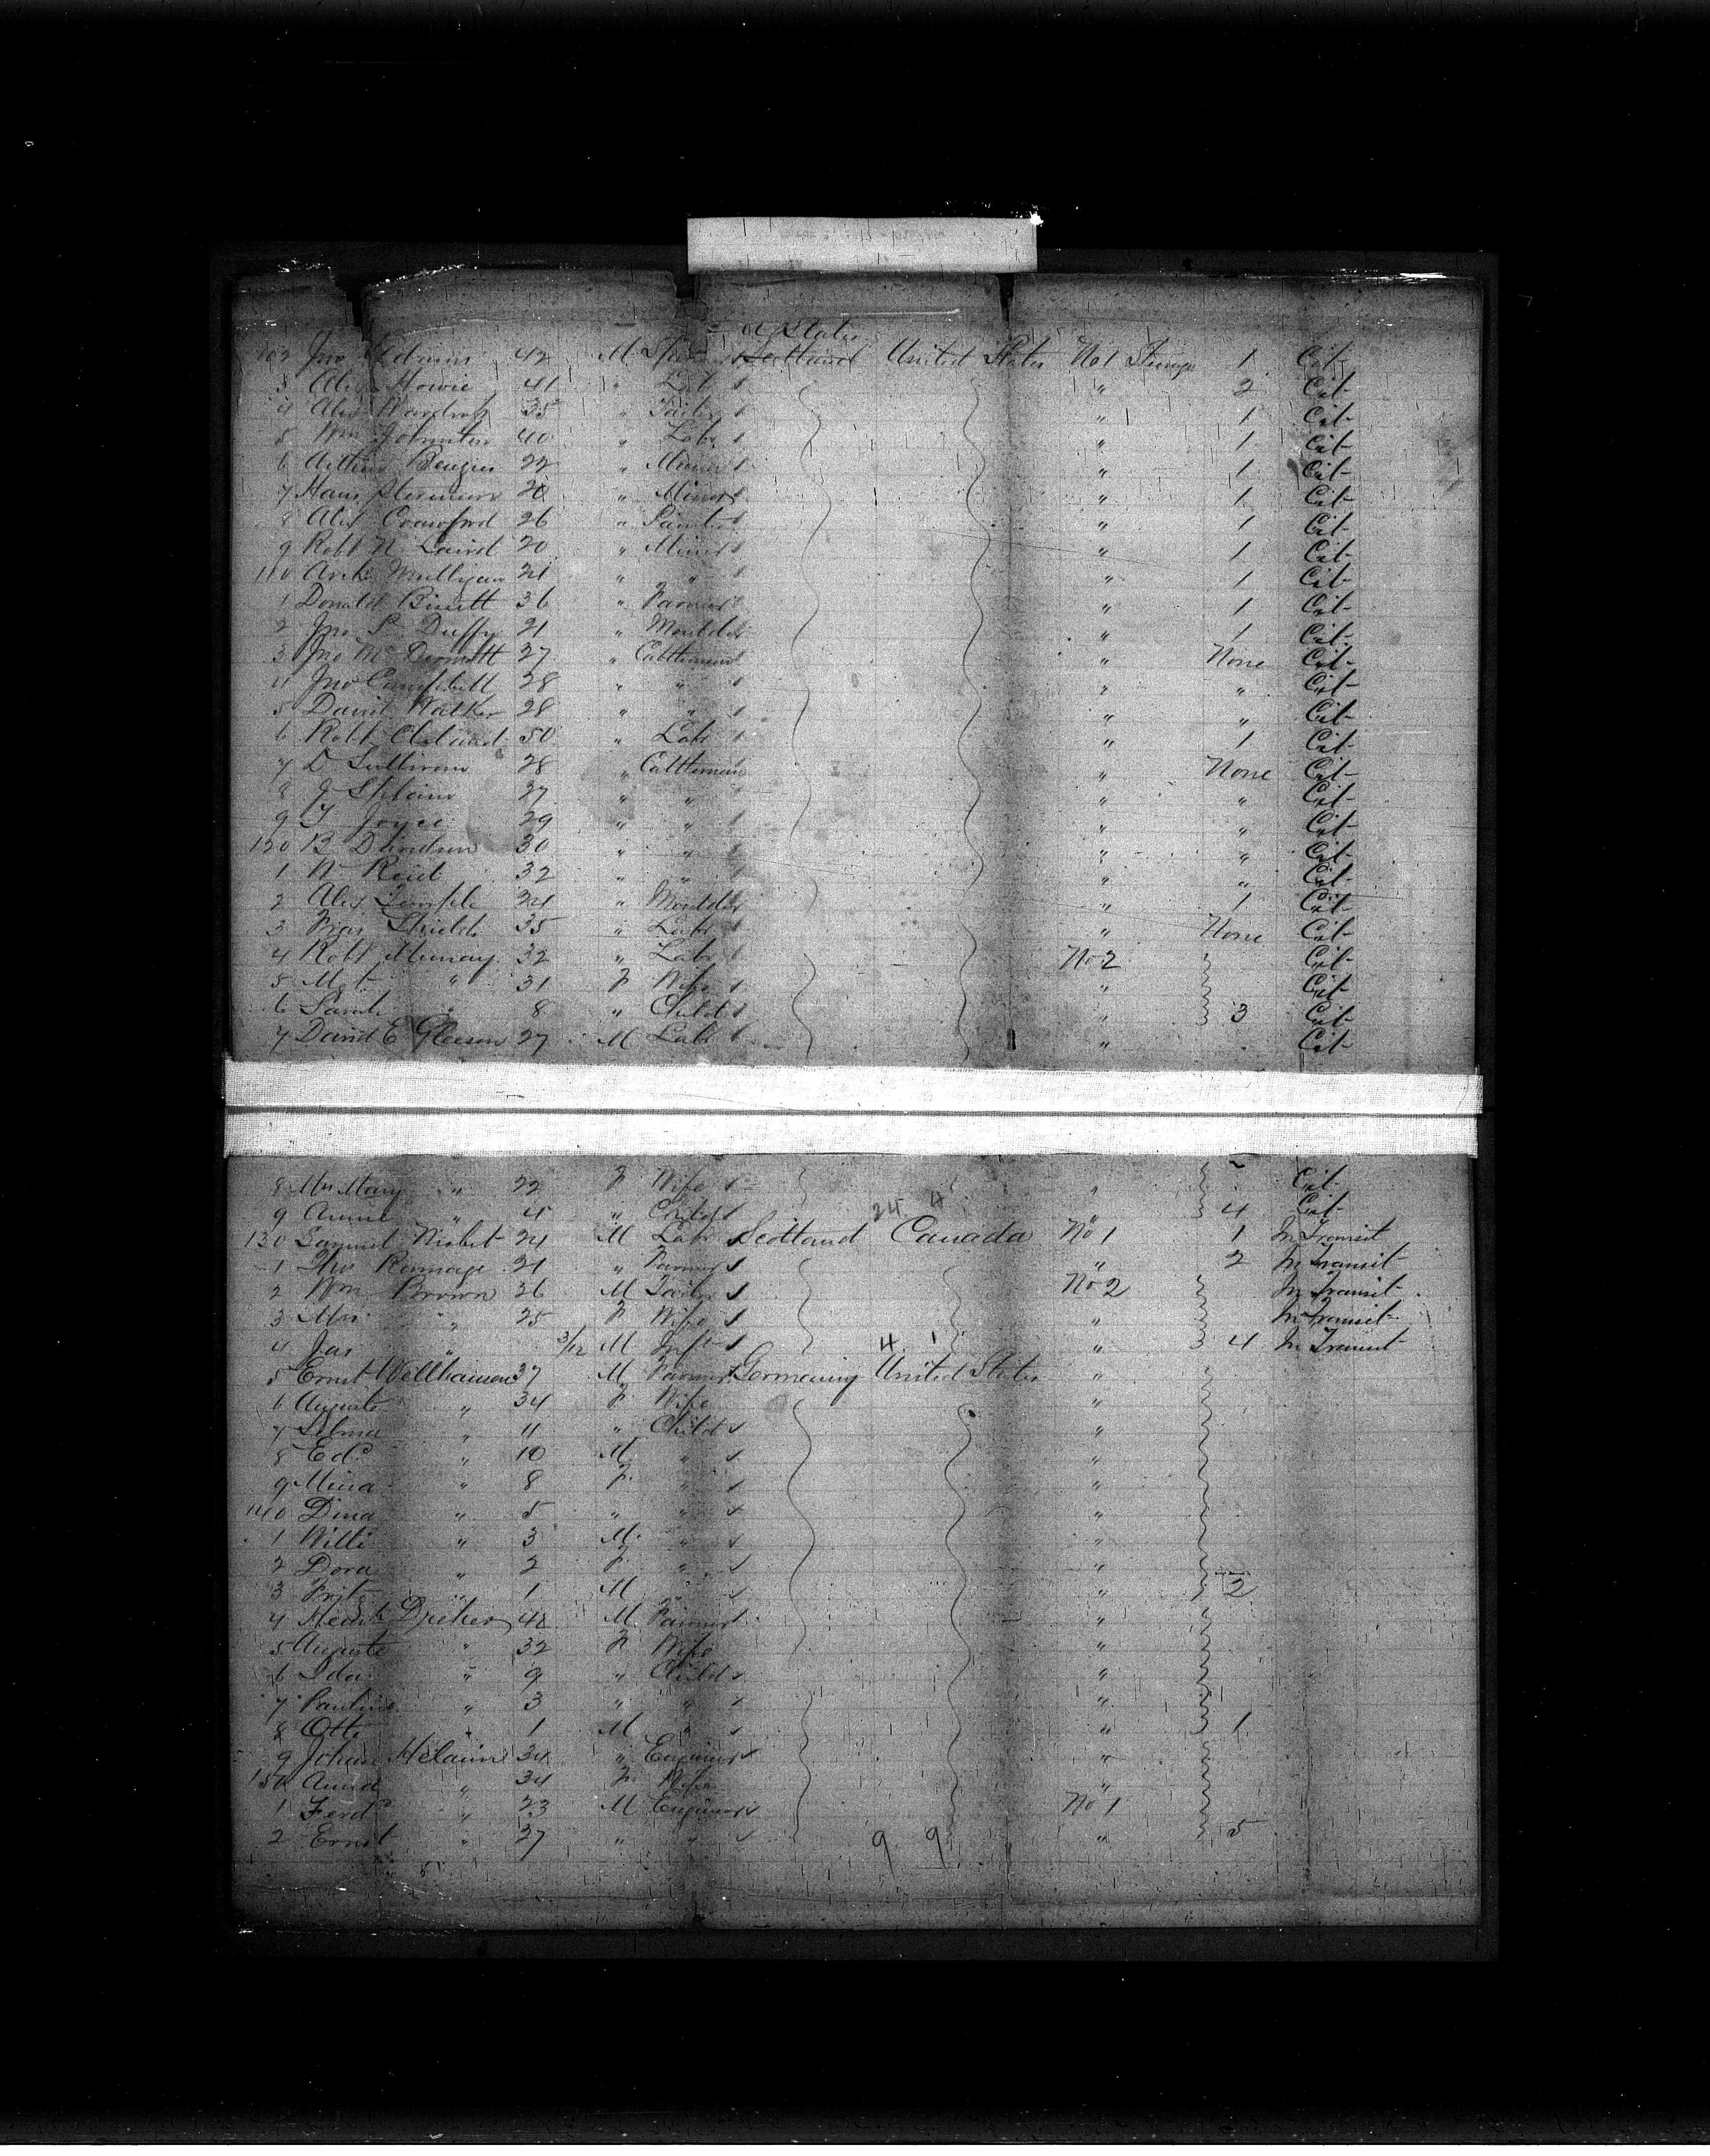 U States
102 Jno Adams 42 M Scotland United States No 1 Steerage 1 Cit
3 Howie 41 " Labr " 2 Cit
4 Alex 35 " Tailor " 1 Cit
5 Wm Johnston 40 " Labr " 1 Cit
6 Arthur 22 " Miner " 1 Cit
7 Hans 28 " Miner " 1 Cit
8 Alex Crawford 26 " " 1 Cit
9 Robt N Laird 20 " Miner " 1 Cit
110 Arch Mulligan 21 " " " 1 Cit
1 Donald Bisett 36 " Farmer " 1 Cit
2 Jno P Duffy 21 " Moulder " 1 Cit
3 Jno McDermott 27 " Cattleman " None Cit
4 Jno Campbell 28 " " " " Cit
5 David Walker 28 " " " " Cit
6 Robt Cleland 50 " Labr " 1 Cit
7 D Sullivan 28 " Cattleman " None Cit
8 J Splaine 27 " " " " Cit
9 T Joyce 29 " " " " Cit
120 B Davidson 30 " " " " Cit
1 W Reid 32 " " " " Cit
2 Alex Temple 24 " Moulder " 1 Cit
3 Fras Shields 35 " Labr " None Cit
4 Robt Murray 32 " Labr No 2 Cit
5 Mgt " 31 F Wife " Cit
6 Sarah " 8 " Child " 3 Cit
7 David E Gleeson 27 M Labr " Cit
8 Mrs Mary " 22 F Wife " Cit
9 Annie " 4 " Child 24 4 " 4 Cit
130 Samuel Nisbet 24 M Labr Scotland Canada No 1 1 In Transit
1 Thos Ramage 21 " Farmer " 2 In Transit
2 Wm Brown 26 M Tailor No 2 In Transit
3 Mrs " 25 F Wife " In Transit
4 Jas " 3/12 M Inft 4 1 " 4 In Transit
5 Ernst Wellhausen 37 M Farmer Germany United States "
6 Auguste " 34 F Wife "
7 Selma " 11 " Child "
8 Edd " 10 M " "
9 Mina " 8 F " "
140 Dina " 5 " " "
1 Willi " 3 M " "
2 Dora " 2 F " "
3 Fritz " 1 M " " 2
4 Heinh Dreher 42 M Farmer "
5 Auguste " 32 F Wife "
6 Ida " 9 " Child "
7 Pauline " 3 " " "
8 Otto " 1 M " " 1
9 Johan 34 " Engineer "
150 Anna " 34 F Wife "
1 Ferdd " 23 M Engineer No 1
2 Ernst " 27 " " 9 9 " 5